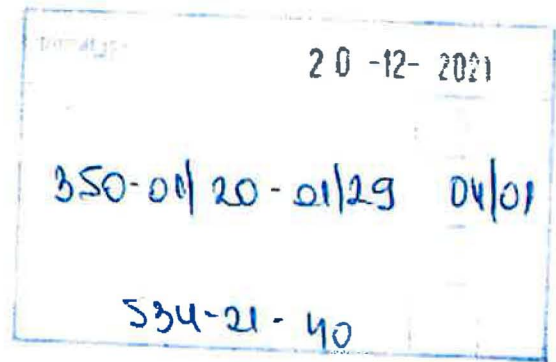 20 -12- 2021
350-01/20-01/29 04/01
534-21-40